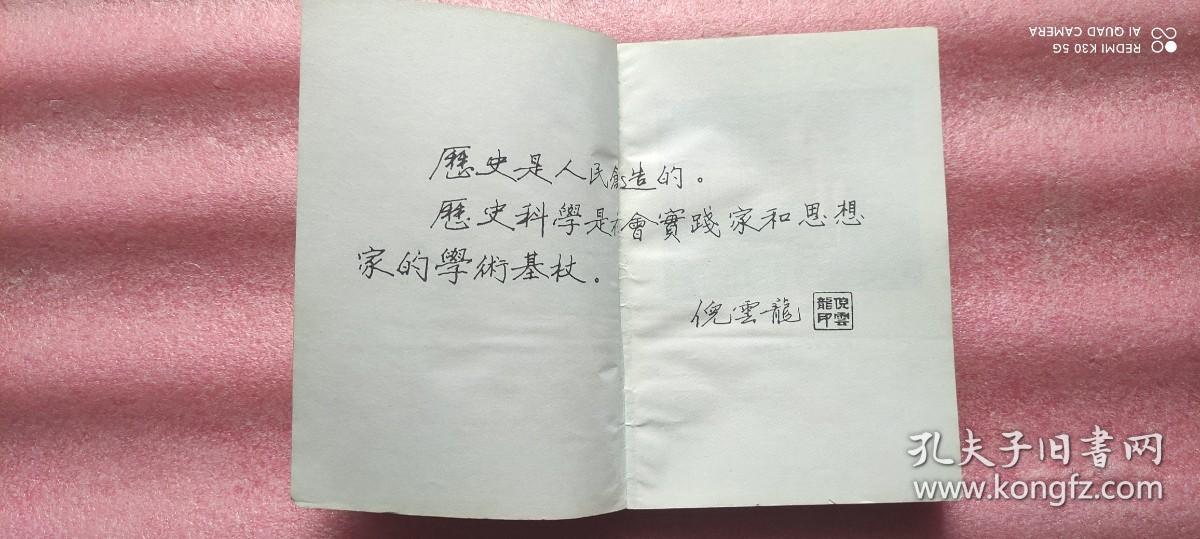 歷史是人民創造的。
歷史科學是社會實踐家和思想
家的學術基杖。
倪雲龍
倪雲
龍印
REDMI K30 5G
AI QUAD CAMERA
孔夫子旧书网
www.kongfz.com